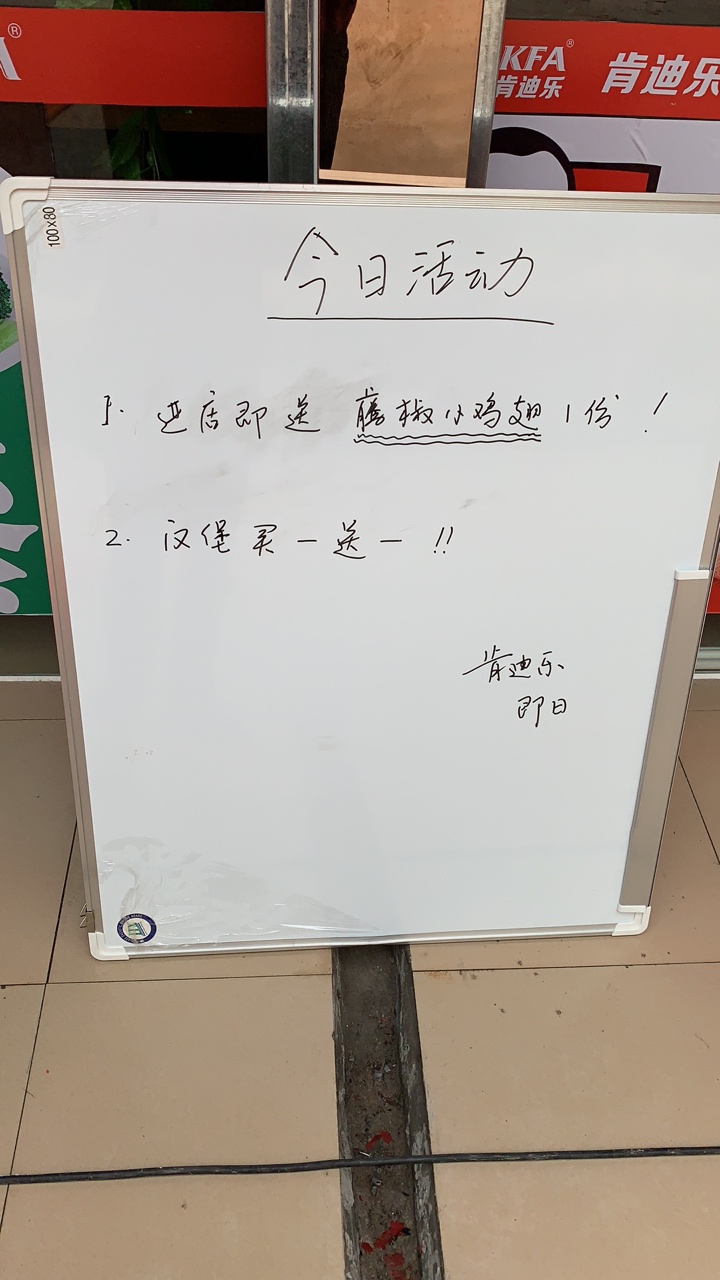 ®
KFA®
肯迪乐
肯迪乐
100×80
今日活动
1. 进店即送 藤椒小鸡翅1份!
2. 汉堡买一送一!!
肯迪乐
即日